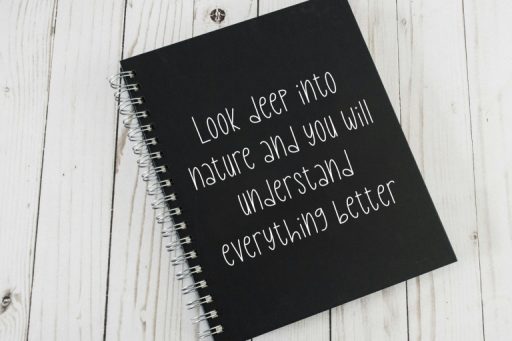 Look deep into
nature and you will
understand
everything better